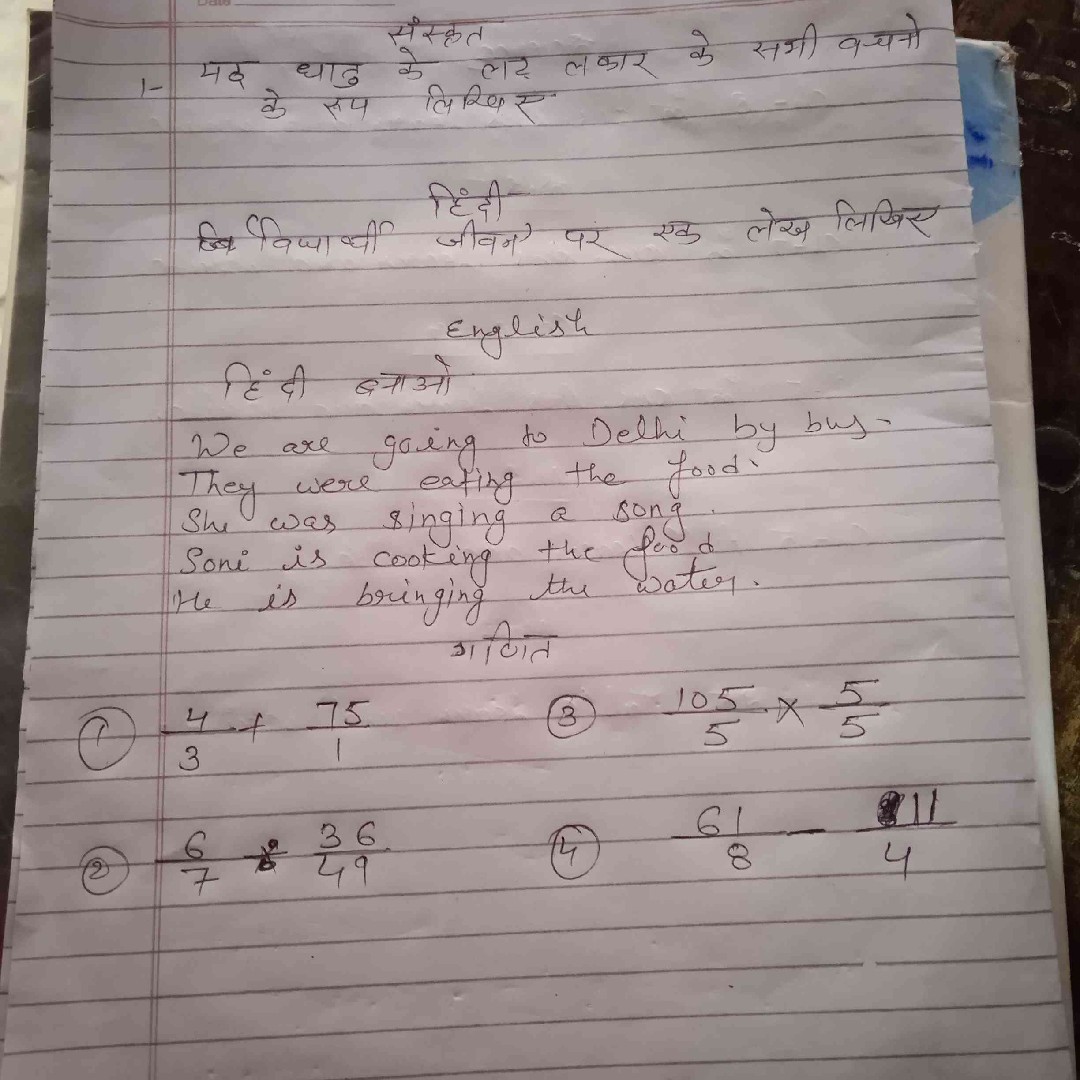 Date
संस्कृत
1- पद धातु के लट लकार के सभी वचनो
के रूप लिखिए
हिंदी
विद्यार्थी जीवन पर एक लेख लिखिए
English
हिंदी बनाओ
We are going to Delhi by bus.
They were eating the food.
She was singing a song.
Soni is cooking the food
He is bringing the water.
गणित
① 4/3 + 75/1 ③ 105/5 × 5/5
② 6/7 ÷ 36/49 ④ 61/8 - 11/4